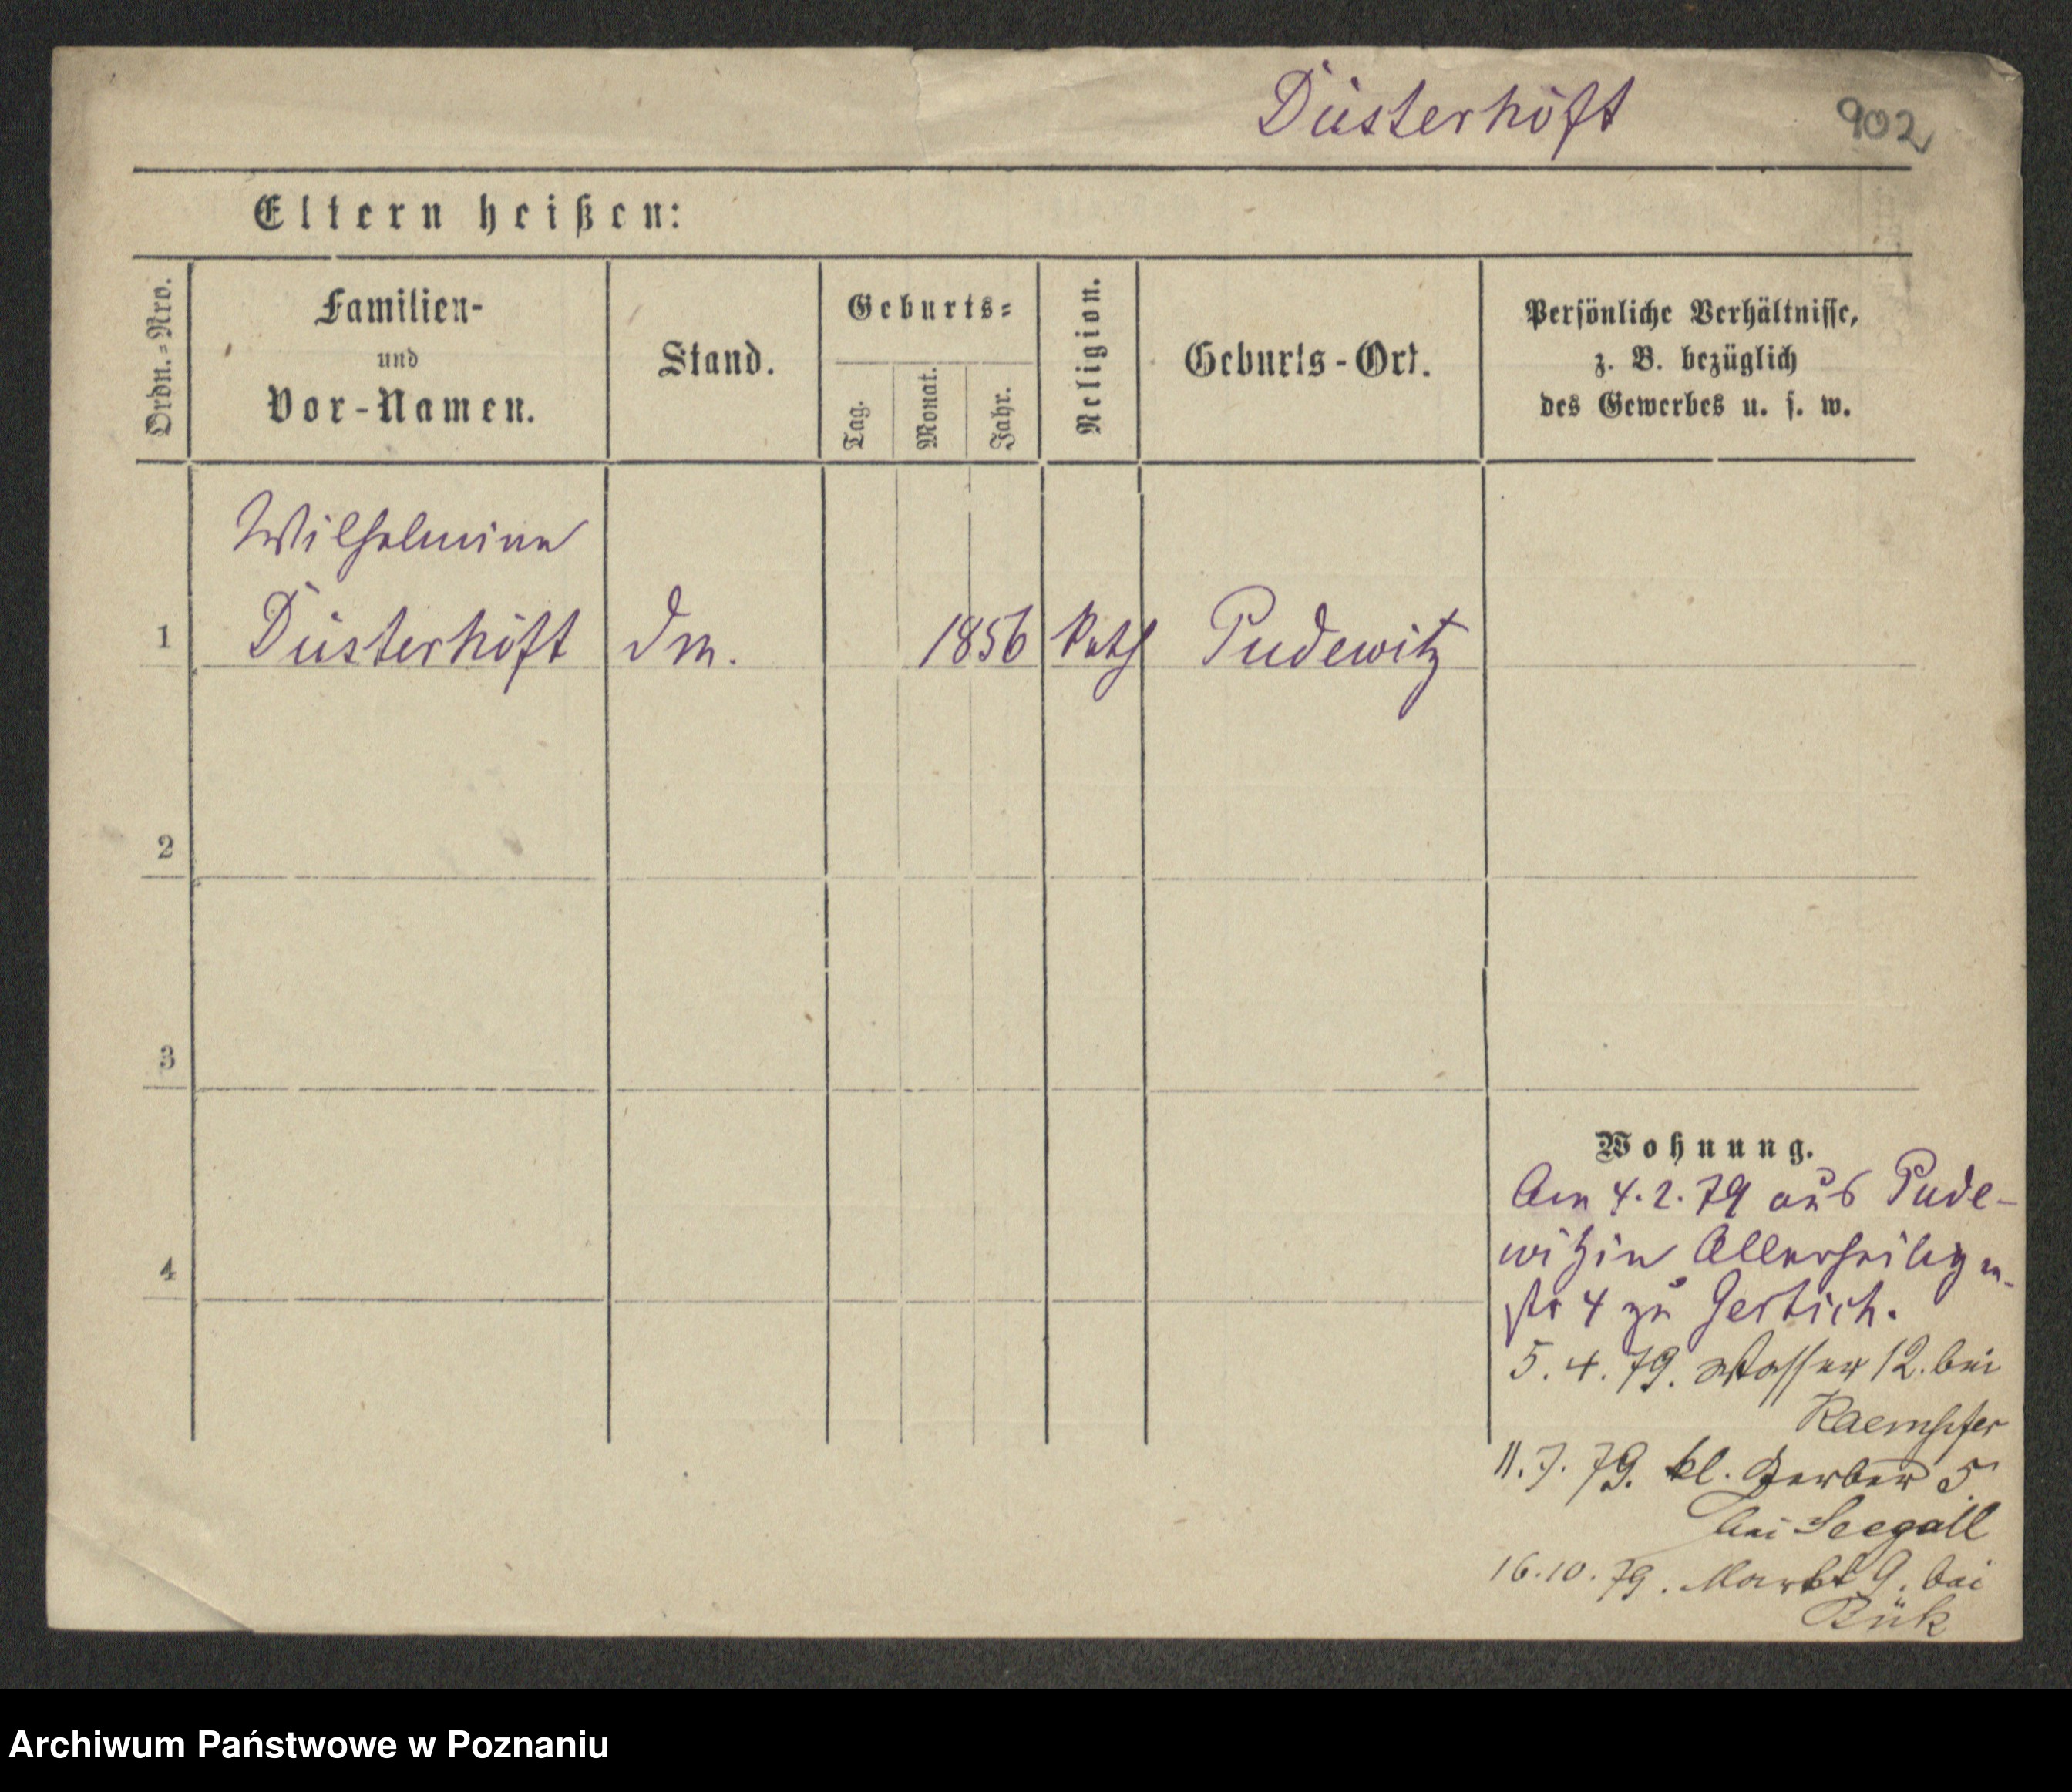 Düsterhöft 902
Eltern heißen:
Ordn.=Nro.
Familien-
und
Vor-Namen.
Stand.
Geburts=
Tag.
Monat.
Jahr.
Religion.
Geburts-Ort.
Persönliche Verhältnisse,
z. B. bezüglich
des Gewerbes u. s. w.
Wilhelmine
1 Düsterhöft Dm. 1856 kath Pudewitz
2
3
4
Wohnung.
Am 4.2.79 aus Pude-
witz in Allerheiligen-
str 4 zu Gertich.
5.4.79. Wasser 12. bei
Kaempfer
11.7.79. kl. Gerber 5
bei Seegall
16.10.79. Markt 9. bei
Bük
Archiwum Państwowe w Poznaniu